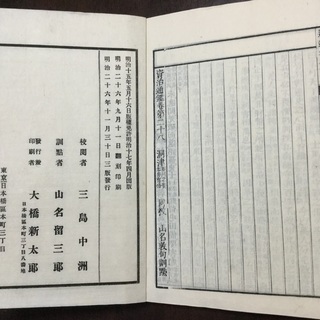 資治通鑑卷第二十八
明治十五年五月十六日版權免許明治十七年四月出版
明治二十六年九月十一日飜刻印刷
明治二十六年十一月三十日三版發行
校閱者 三島中洲
訓點者 山名留三郎
發行兼印刷者 大橋新太郎
日本橋區本町三丁目八番地
東京日本橋區本町三丁目